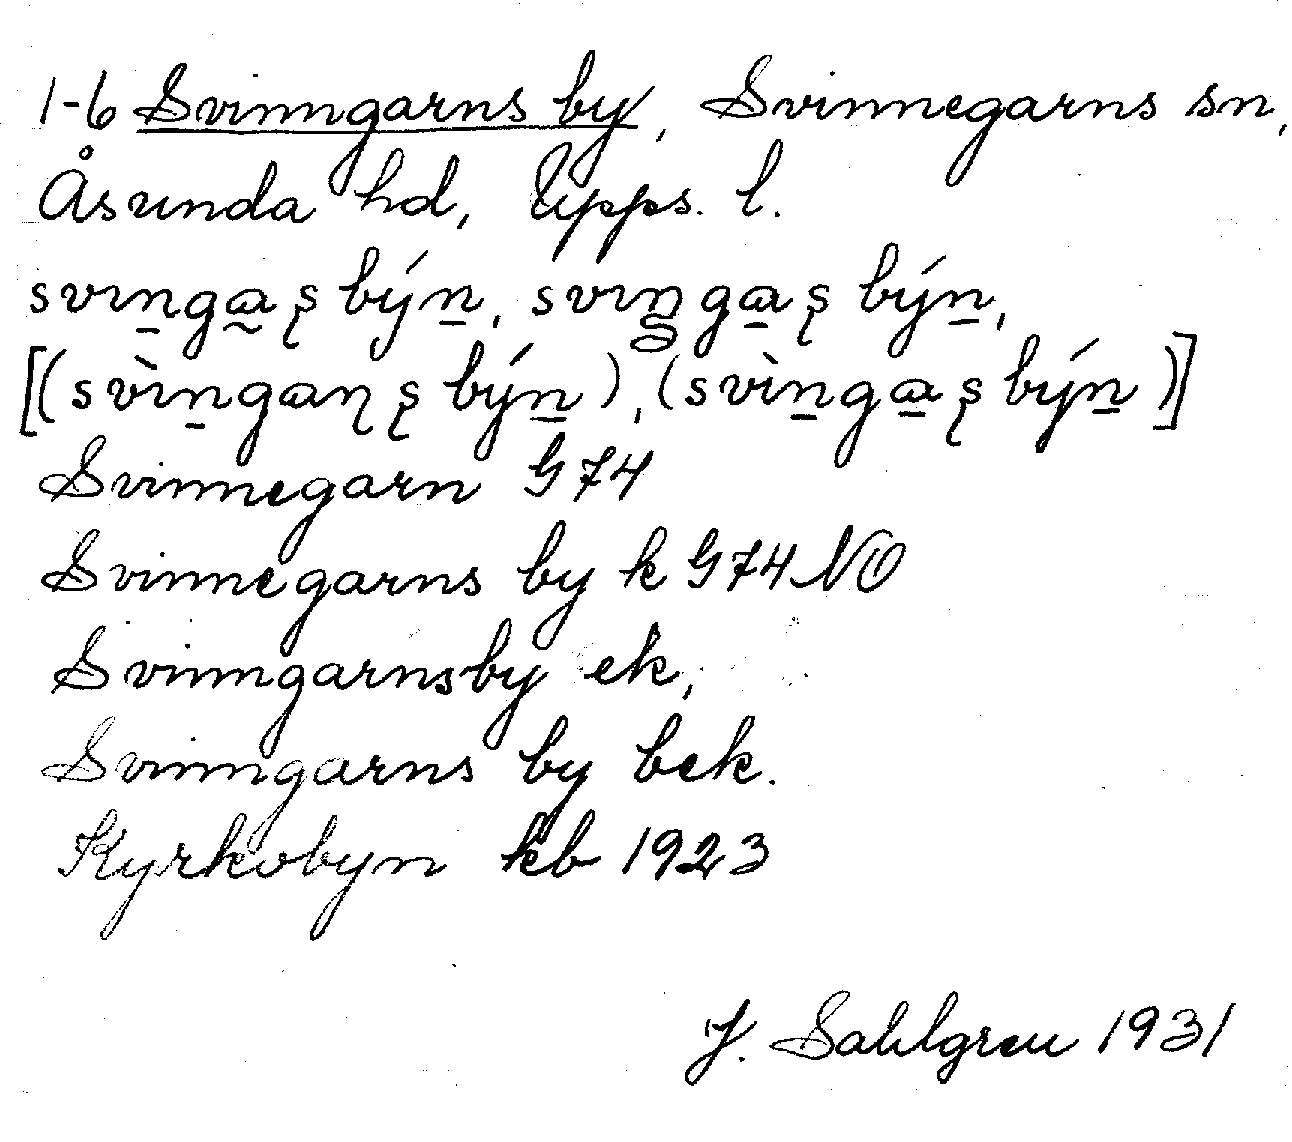 1-6 Svinngarns by, Svinnegarns sn,
Åsunda hd, Upps. l.
svıṉga̰ʂ býṉ, svıṉga̱ʂ býṉ,
[(svı̀ṉgaɳʂ býṉ), (svı̀ṉga̱ʂ býṉ)]
Svinnegarn G74
Svinnegarns by k G74NO
Svinngarnsby ek,
Svinngarns by bek.
Kyrkobyn kb 1923
J. Sahlgren 1931